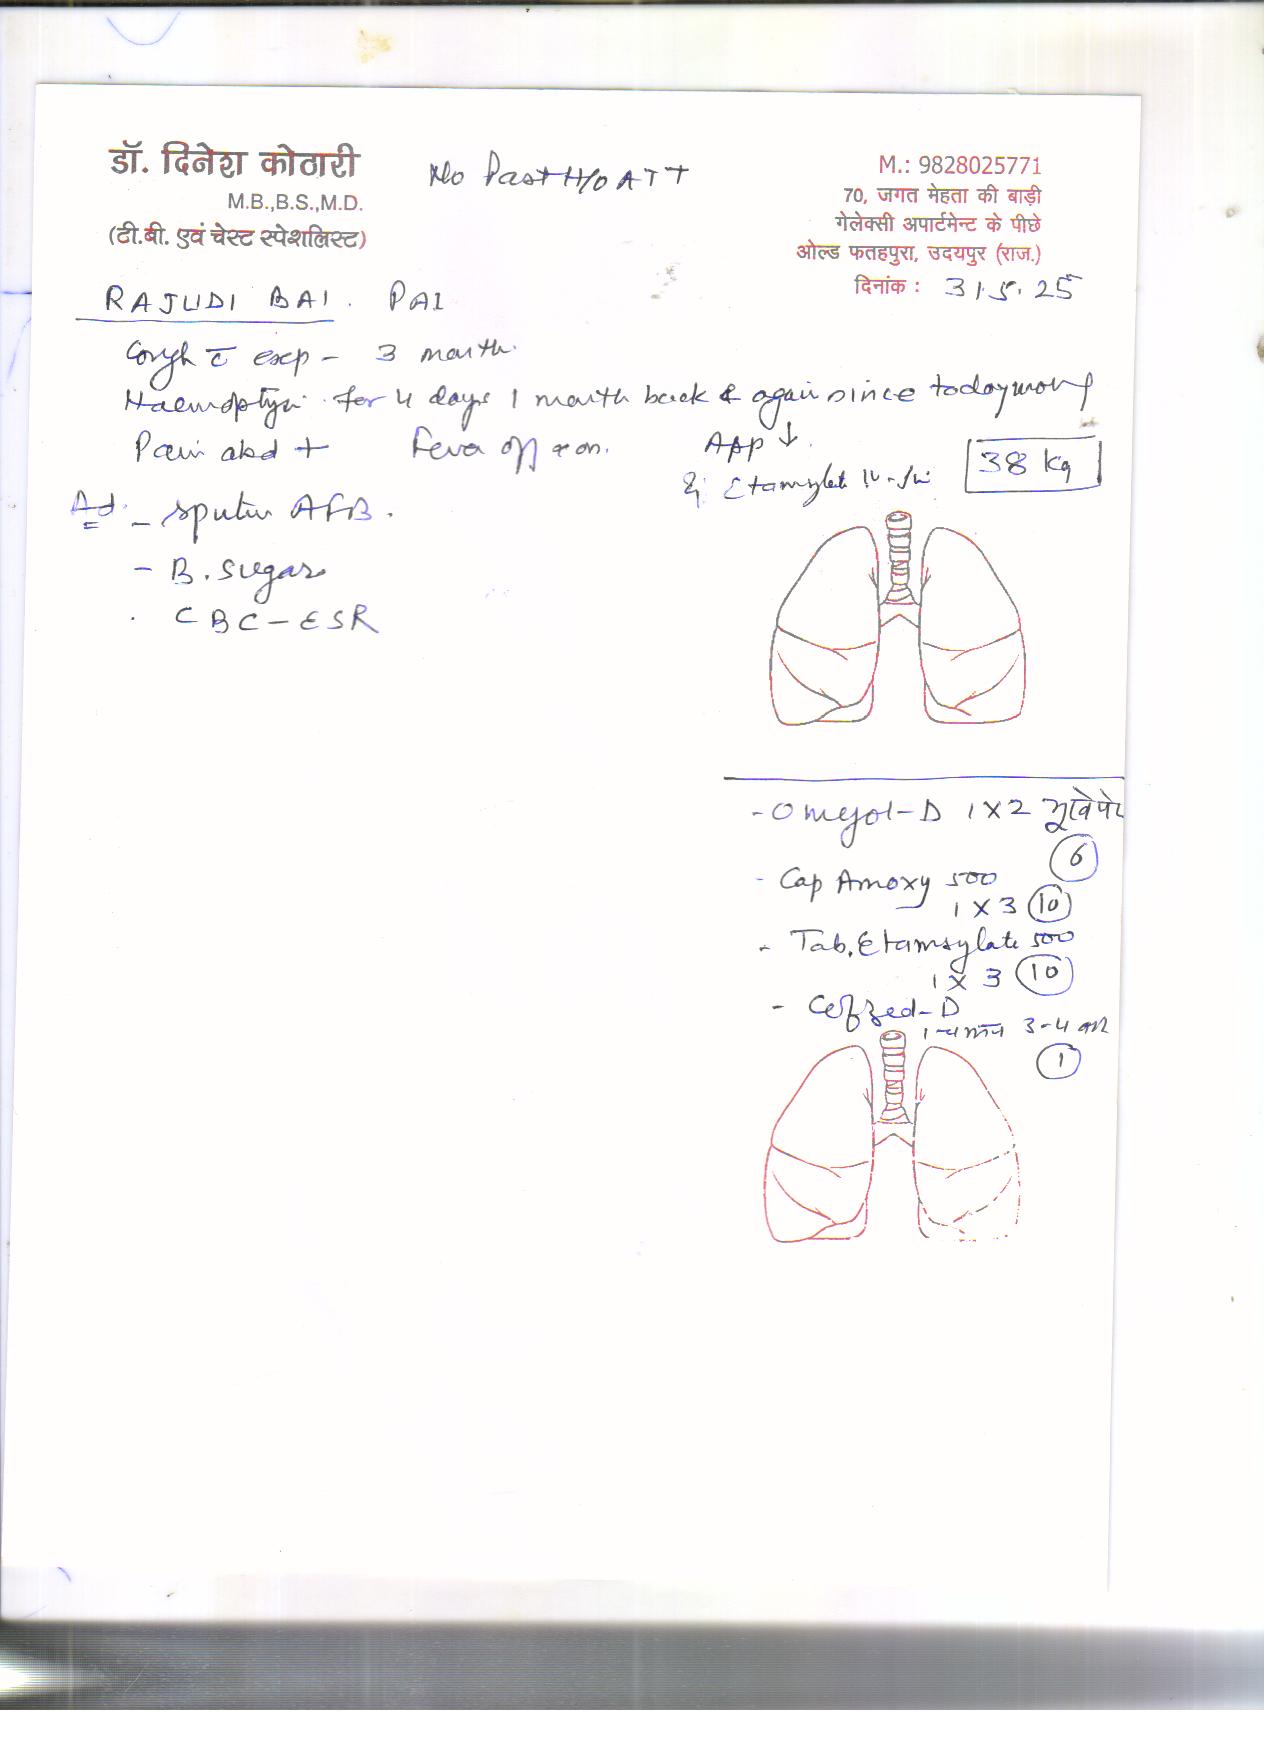 डॉ. दिनेश कोठारी
M.B.,B.S.,M.D.
(टी.बी. एवं चेस्ट स्पेशलिस्ट)
No Past H/O ATT
M.: 9828025771
70, जगत मेहता की बाड़ी
गेलेक्सी अपार्टमेन्ट के पीछे
ओल्ड फतहपुरा, उदयपुर (राज.)
दिनांक : 31.5.25
RAJUDI BAI. PAI
Cough c̄ exp - 3 month.
Haemoptysis for 4 days 1 month back & again since today morng
Pain abd + Fever off & on. App ↓.
Etamsylate 38 kg
Ad. - Sputum AFB.
- B. Sugar
. CBC-ESR
- Omejol-D 1X2
6
- Cap Amoxy 500
1 X 3 10
- Tab. Etamsylate 500
1 X 3 10
- Cefzed-D
3-4
1